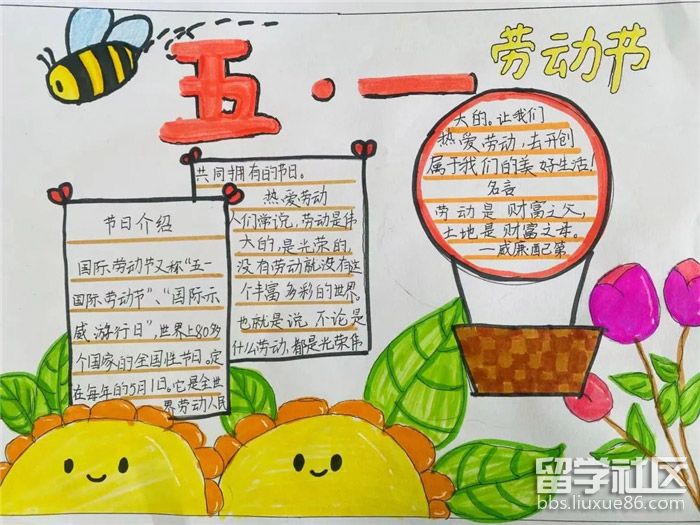 五·一
劳动节
节日介绍
国际劳动节又称“五一
国际劳动节”、“国际示
威游行日”,世界上80多
个国家的全国性节日。定
在每年的5月1日。它是全世
界劳动人民
共同拥有的节日。
热爱劳动
人们常说,劳动是伟
大的,是光荣的。
没有劳动就没有这
个丰富多彩的世界。
也就是说,不论是
什么劳动,都是光荣伟
大的。让我们
热爱劳动,去开创
属于我们的美好生活!
名言
劳动是财富之父,
土地是财富之母。
—威廉配第
留学社区
bbs.liuxue86.com